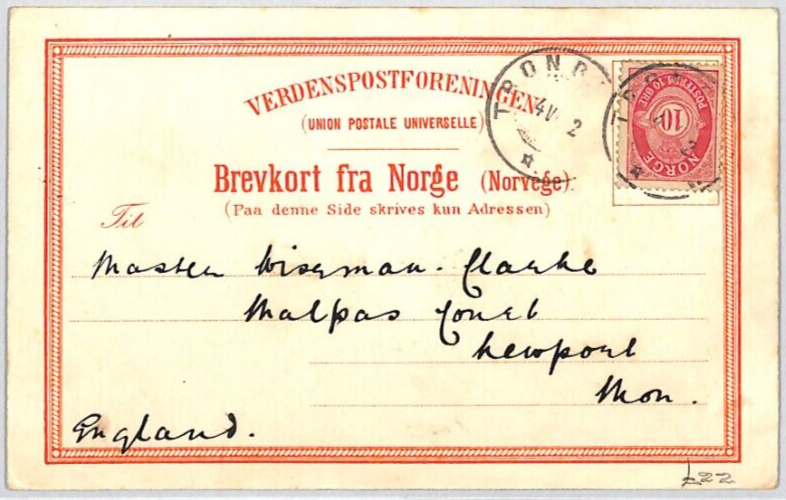 VERDENSPOSTFORENINGEN
(UNION POSTALE UNIVERSELLE)
Brevkort fra Norge (Norvège).
(Paa denne Side skrives kun Adressen)
Til
Master Wiseman-Clarke
Malpas Court
Newport
Mon.
England.
TROND
4 V 2
NORGE
10
POSTFRIM. 10 ØRE
£22